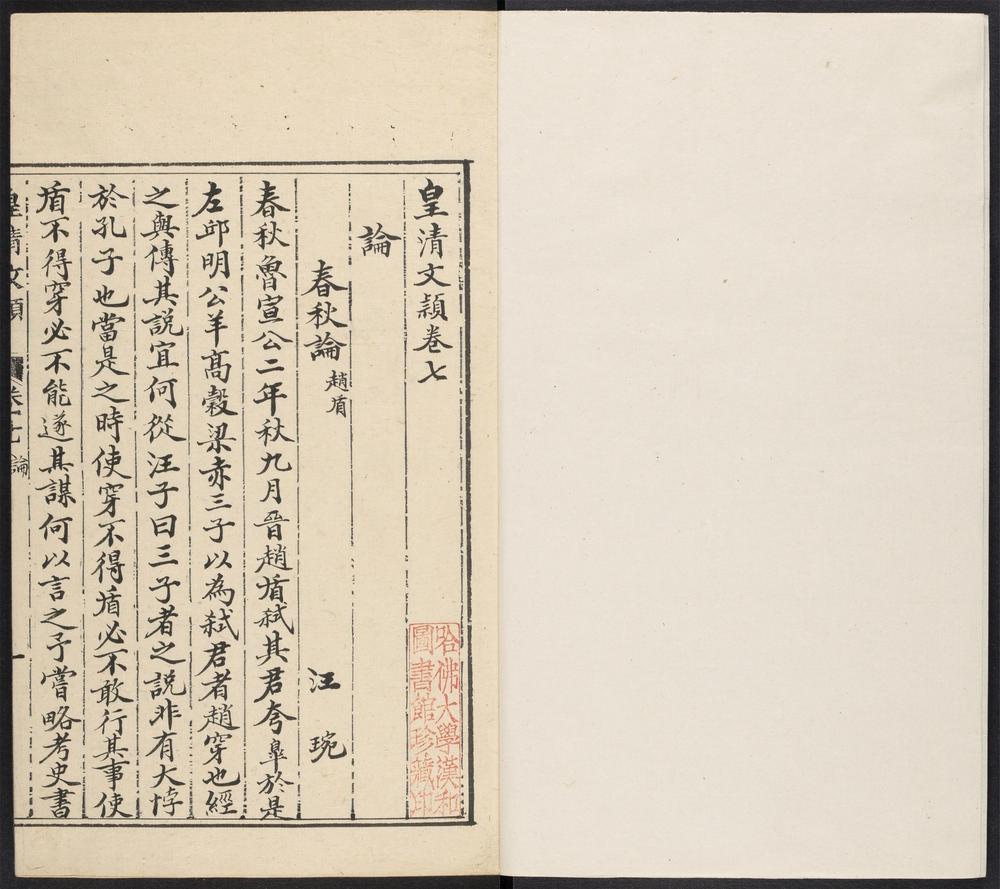 皇清文穎卷七
論
春秋論趙盾
汪琬
春秋魯宣公二年秋九月晉趙盾弑其君夷臯於是
左邱明公羊高穀梁赤三子以為弑君者趙穿也經
之與傳其說宜何從汪子曰三子者之說非有大悖
於孔子也當是之時使穿不得盾必不敢行其事使
盾不得穿必不能遂其謀何以言之予嘗略考史書
皇清文穎 卷七 論 一
哈佛大學漢和
圖書館珍藏印